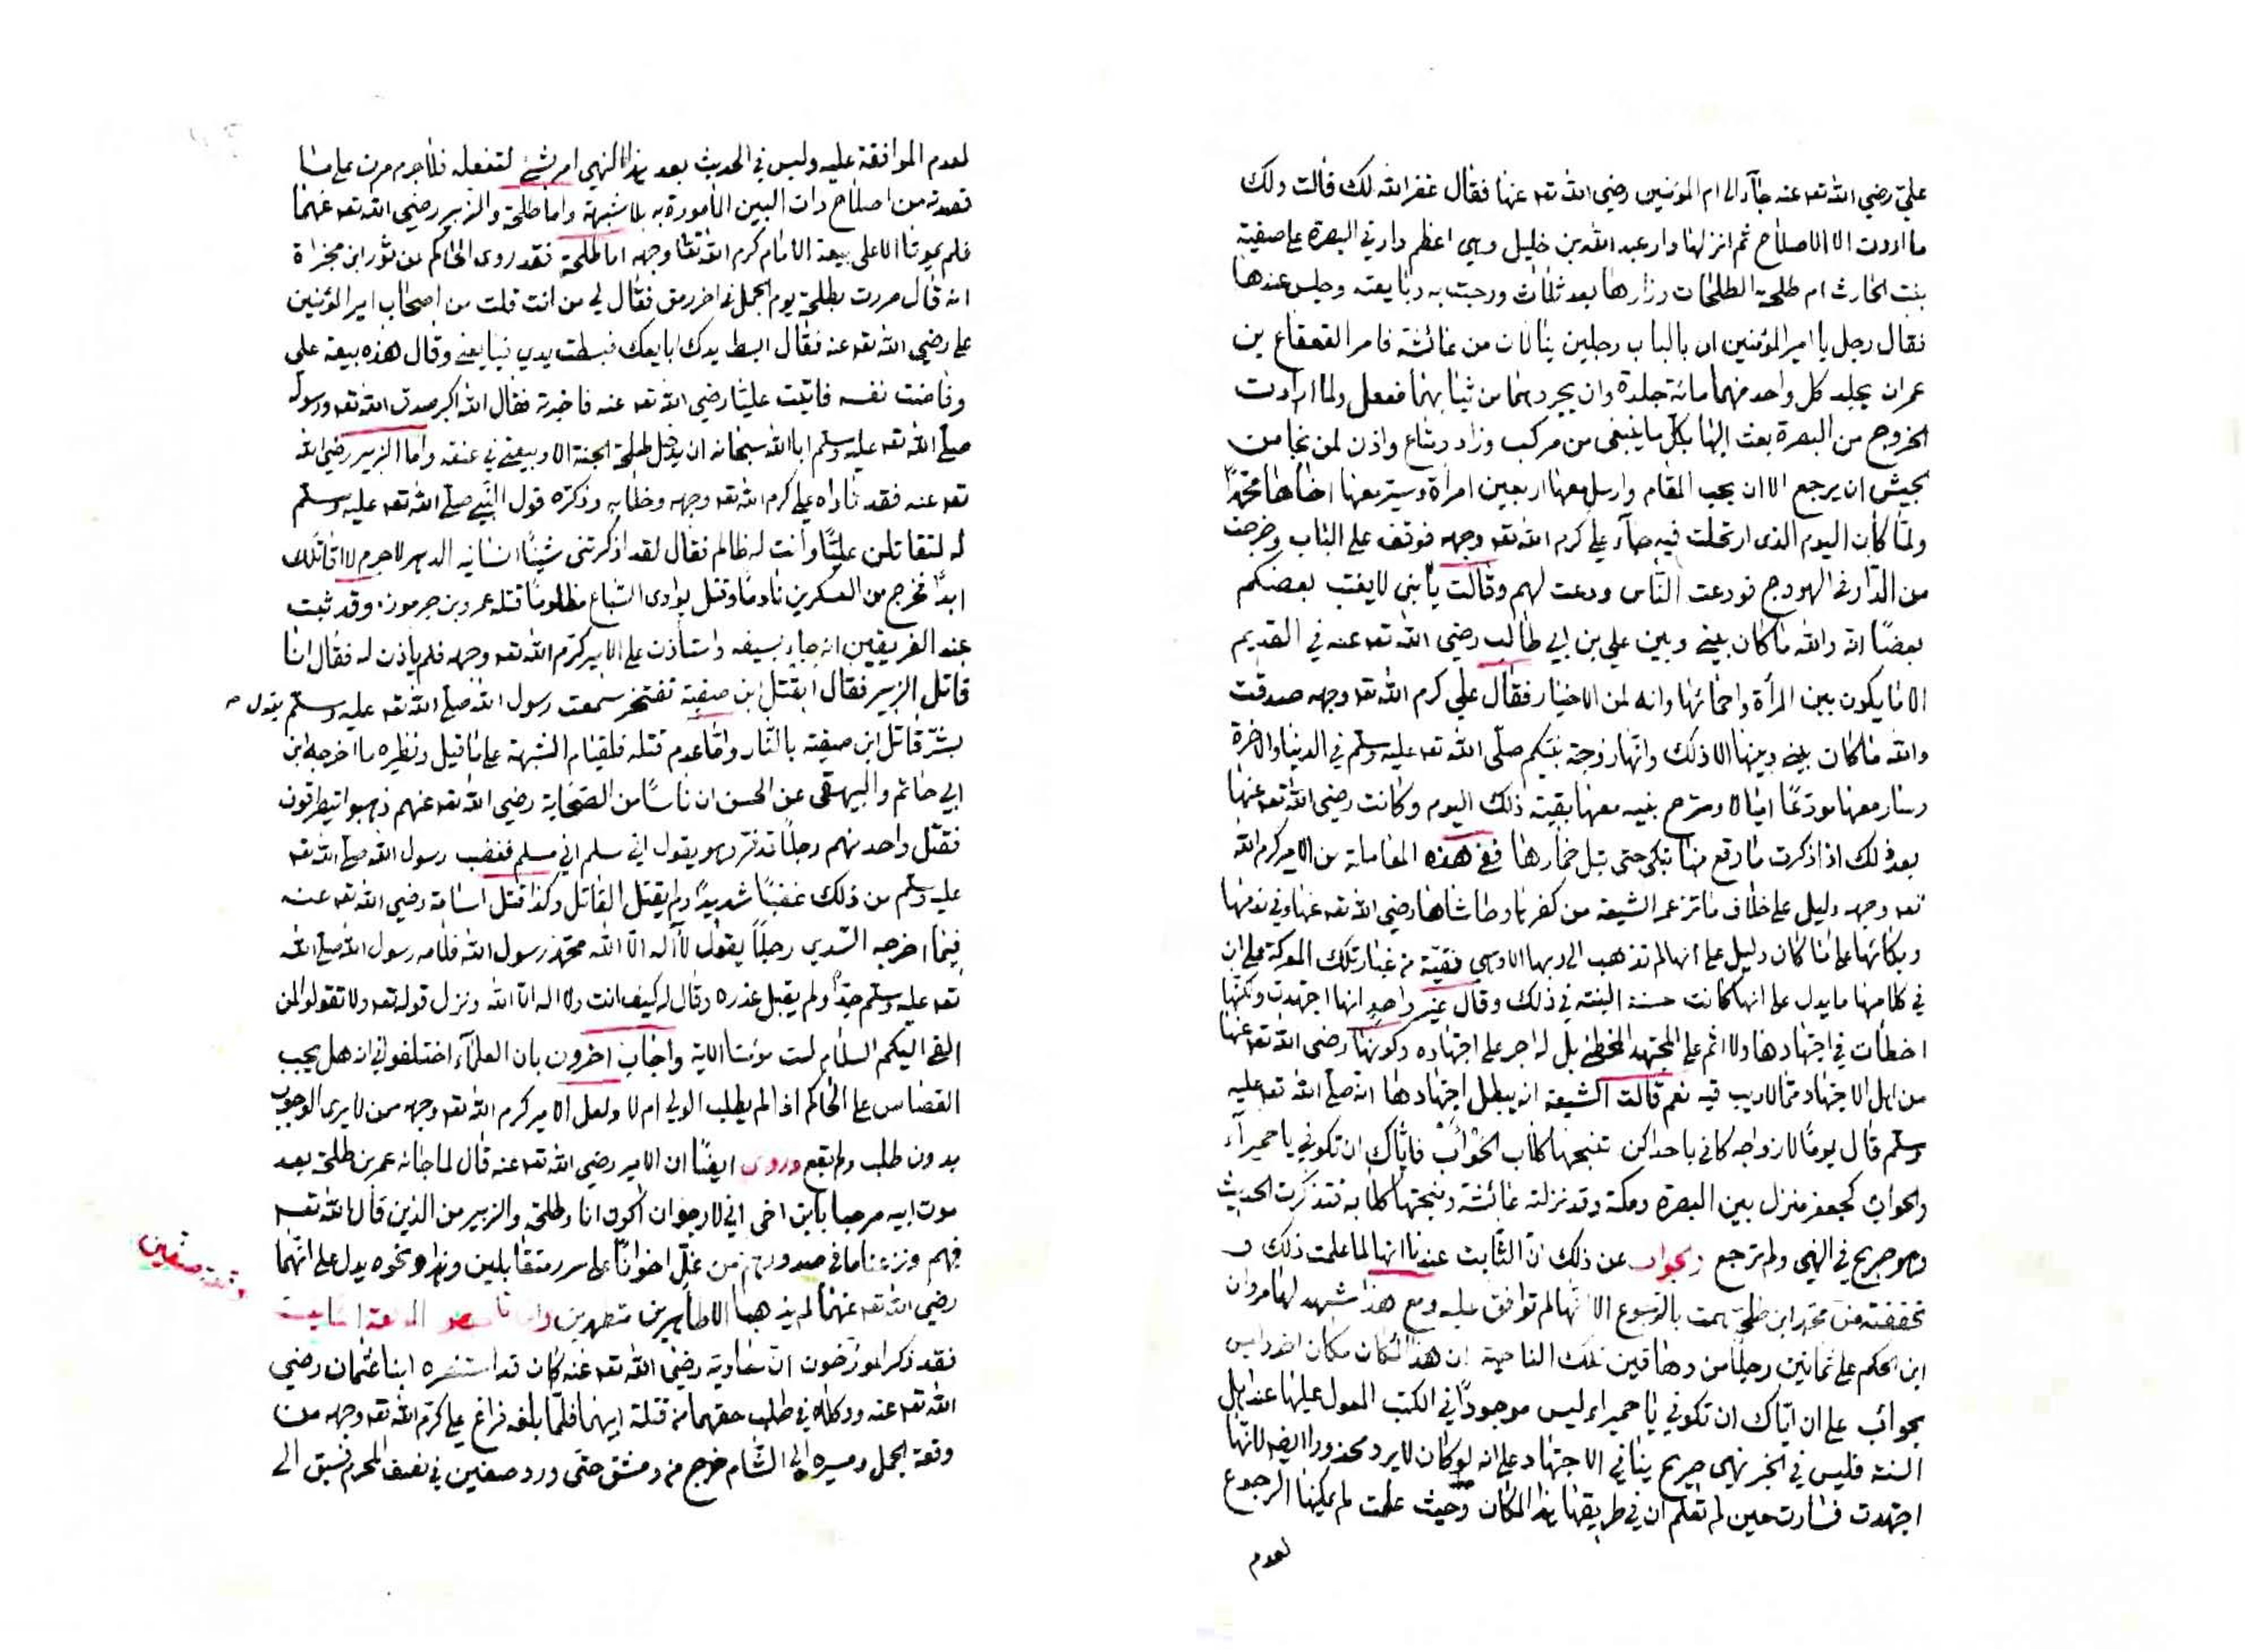 علي رضي الله تعه عنه جآء الى ام المؤمنين رضي الله تعه عنها فقال غفر الله لك قالت ولك
ما اردت الا الاصلاح ثم انزلها دار عبد الله بن خليل وهي اعظم دار في البصرة على صفية
بنت الحارث ام طلحة الطلحات وزارها بعد ثلاث ورحبت به وبايعته وجلس عندها
فقال رجل يا امير المؤمنين ان بالباب رجلين ينالان من عائشة فامر القعقاع بن
عمران يجلد كل واحد منهما مائة جلدة وان يجردهما من ثيابهما ففعل ولما ارادت
الخروج من البصرة بعث اليها بكل ما ينبغي من مركب وزاد ومتاع واذن لمن نجا من
الجيش ان يرجع الا ان يحب المقام وارسل معها اربعين امرأة وسير معها اخاها محمدًا
ولما كان اليوم الذي ارتحلت فيه جآء علي كرم الله تعه وجهه فوقف على الباب وخرجت
من الدار في الهودج فودعت الناس ودعت لهم وقالت يا بني لا يغتب بعضكم
بعضًا انه والله ما كان بيني وبين علي بن ابي طالب رضي الله تعه عنه في القديم
الا ما يكون بين المرأة واحمائها وانه لمن الاخيار فقال علي كرم الله تعه وجهه صدقت
والله ما كان بيني وبينها الا ذلك وانها زوجة نبيكم صلّى الله تعه عليه وسلم في الدنيا والاخرة
وسار معها مودعًا اميالا وسرّح بنيه معها بقية ذلك اليوم وكانت رضي الله تعه عنها
بعد ذلك اذا ذكرت ما وقع منها تبكي حتى تبل خمارها ففي هذه المعاملة من الامير كرم الله
تعه وجهه دليل على خلاف ما تزعم الشيعة من كفرها وحاشاها رضي الله تعه عنها وفي ندمها
وبكائها على ما كان دليل على انها لم تذهب الى ربها الا وهي نقية من غبار تلك المعركة على ان
في كلامها ما يدل على انها كانت حسنة النية في ذلك وقال غير واحد انها اجتهدت ولكنها
اخطأت في اجتهادها ولا اثم على المجتهد المخطئ بل له اجر على اجتهاده وكونها رضي الله تعه عنها
من اهل الاجتهاد مما لا ريب فيه نعم قالت الشيعة انه يبطل اجتهادها انه صلى الله تعه عليه
وسلم قال يومًا لازواجه كاني باحداكن تنبحها كلاب الحوأب فاياك ان تكوني يا حميرآء
والحوأب كجعفر منزل بين البصرة ومكة وقد نزلته عائشة ونبحتها كلابه فتذكرت الحديث
وهو صريح في النهي ولم ترجع والجواب عن ذلك ان الثابت عندنا انها لما علمت ذلك و
تحققته من محمد ابن طلحة همت بالرجوع الا انها لم توافق عليه ومع هذا شهد لها مروان
ابن الحكم على ثمانين رجلًا من دهاقين تلك الناحية ان هذا المكان مكان اخر وليس
بحوأب على ان اياك ان تكوني يا حميراء ليس موجودًا في الكتب المعول عليها عند اهل
السنة فليس في الخبر نهي صريح ينافي الاجتهاد على انه لو كان لا يرد محذورا ايضه لانها
اجتهدت فسارت حين لم تعلم ان في طريقها هذا المكان وحيث علمت لم يمكنها الرجوع
لعدم
لعدم الموافقة عليه وليس في الحديث بعد هذا النهي امر بشئ لتفعله فلا جرم مرت على ما
قصدته من اصلاح ذات البين المأمورة به بلا شبهة واما طلحة والزبير رضي الله تعه عنهما
فلم يموتا الا على بيعة الامام كرم الله تعا وجهه اما طلحة فقد روى الحاكم عن ثور ابن مجزاة
انه قال مررت بطلحة يوم الجمل في اخر رمق فقال لي من انت قلت من اصحاب امير المؤمنين
علي رضي الله تعه عنه فقال ابسط يدك ابايعك فبسطت يدي فبايعني وقال هذه بيعة علي
وفاضت نفسه فاتيت عليًا رضي الله تعه عنه فاخبرته فقال الله اكبر صدق الله تعه ورسوله
صلى الله تعه عليه وسلم ابا الله سبحانه ان يدخل طلحة الجنة الا وبيعتي في عنقه واما الزبير رضي الله
تعه عنه فقد ناداه علي كرم الله تعه وجهه وخلا به وذكره قول النبي صلى الله تعه عليه وسلم
له لتقاتلن عليًّا وانت له ظالم فقال لقد اذكرتني شيئًا انسانيه الدهر لا جرم لا اقاتلك
ابدًا فخرج من العسكرين نادمًا وقتل بوادي السباع مظلومًا قتله عمرو بن جرموز وقد ثبت
عند الفريقين انه جاء بسيفه واستأذن على الامير كرم الله تعه وجهه فلم يأذن له فقال انا
قاتل الزبير فقال ابقتل ابن صفية تفتخر سمعت رسول الله صلى الله تعه عليه وسلم يقول
بشّر قاتل ابن صفية بالنّار وامّا عدم قتله فلقيام الشبهة على ما قيل ونظيره ما اخرجه ابن
ابي حاتم والبيهقي عن الحسن ان ناسًا من الصحابة رضي الله تعه عنهم ذهبوا يتطرقون
فقتل واحد منهم رجلًا قد فرّ وهو يقول اني مسلم اني مسلم فغضب رسول الله صلى الله تعه
عليه وسلم من ذلك غضبًا شديدًا ولم يقتل القاتل وكذا قتل اسامة رضي الله تعه عنه
فيما اخرجه السّدي رجلًا يقول لآ اله الا الله محمد رسول الله فلامه رسول الله صلى الله
تعه عليه وسلم جدًا ولم يقبل عذره وقال له كيف انت ولا اله الا الله ونزل قوله تعه ولا تقولوا لمن
القى اليكم السلام لست مؤمنا الاية واجاب اخرون بان العلمآء اختلفوا في انه هل يجب
القصاص على الحاكم اذا لم يطلب الولي ام لا ولعل الامير كرم الله تعه وجهه ممن لا يرى الوجوب
بدون طلب ولم يقع وروي ايضًا ان الامير رضي الله تعه عنه قال لما جائه عمر بن طلحة بعد
موت ابيه مرحبا بابن اخي اني لارجوا ان اكون انا وطلحة والزبير من الذين قال الله تعه
فيهم ونزعنا ما في صدورهم من غلّ اخوانًا على سرر متقابلين وهذا ونحوه يدل على انهما
رضي الله تعه عنهما لم يذهبا الا طاهرين متطهرين
وقعة صفين
فقد ذكر المؤرخون ان معاوية رضي الله تعه عنه كان قد استنصره ابنا عثمان رضي
الله تعه عنه ووكلاه في طلب حقهما من قتلة ابيهما فلمّا بلغه فراغ علي كرم الله تعه وجهه من
وقعة الجمل ومسيره الى الشام خرج من دمشق حتى ورد صفين في نصف المحرم فسبق الى